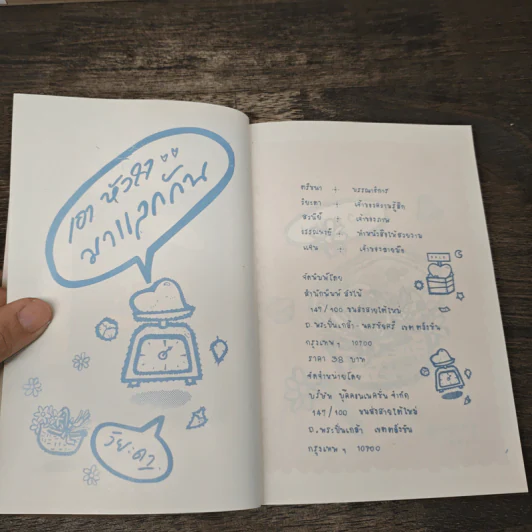 เอาหัวใจ
มาแลกกัน
วิยะดา
ศรัทยา + บรรณาธิการ
วิยะดา + เจ้าของความรู้สึก
+ เจ้าของภาพ
+ ทำหนังสือให้สวยงาม
+ เจ้าของลายมือ
จัดพิมพ์โดย
สำนักพิมพ์ สายใต้
147/100 ขนส่งสายใต้ใหม่
ถ.พระปิ่นเกล้า-นครชัยศรี เขตตลิ่งชัน
กรุงเทพฯ 10700
ราคา 38 บาท
จัดจำหน่ายโดย
บริษัท บุ๊คคอนเนคชั่น จำกัด
147/100 ขนส่งสายใต้ใหม่
ถ.พระปิ่นเกล้า เขตตลิ่งชัน
กรุงเทพฯ 10700